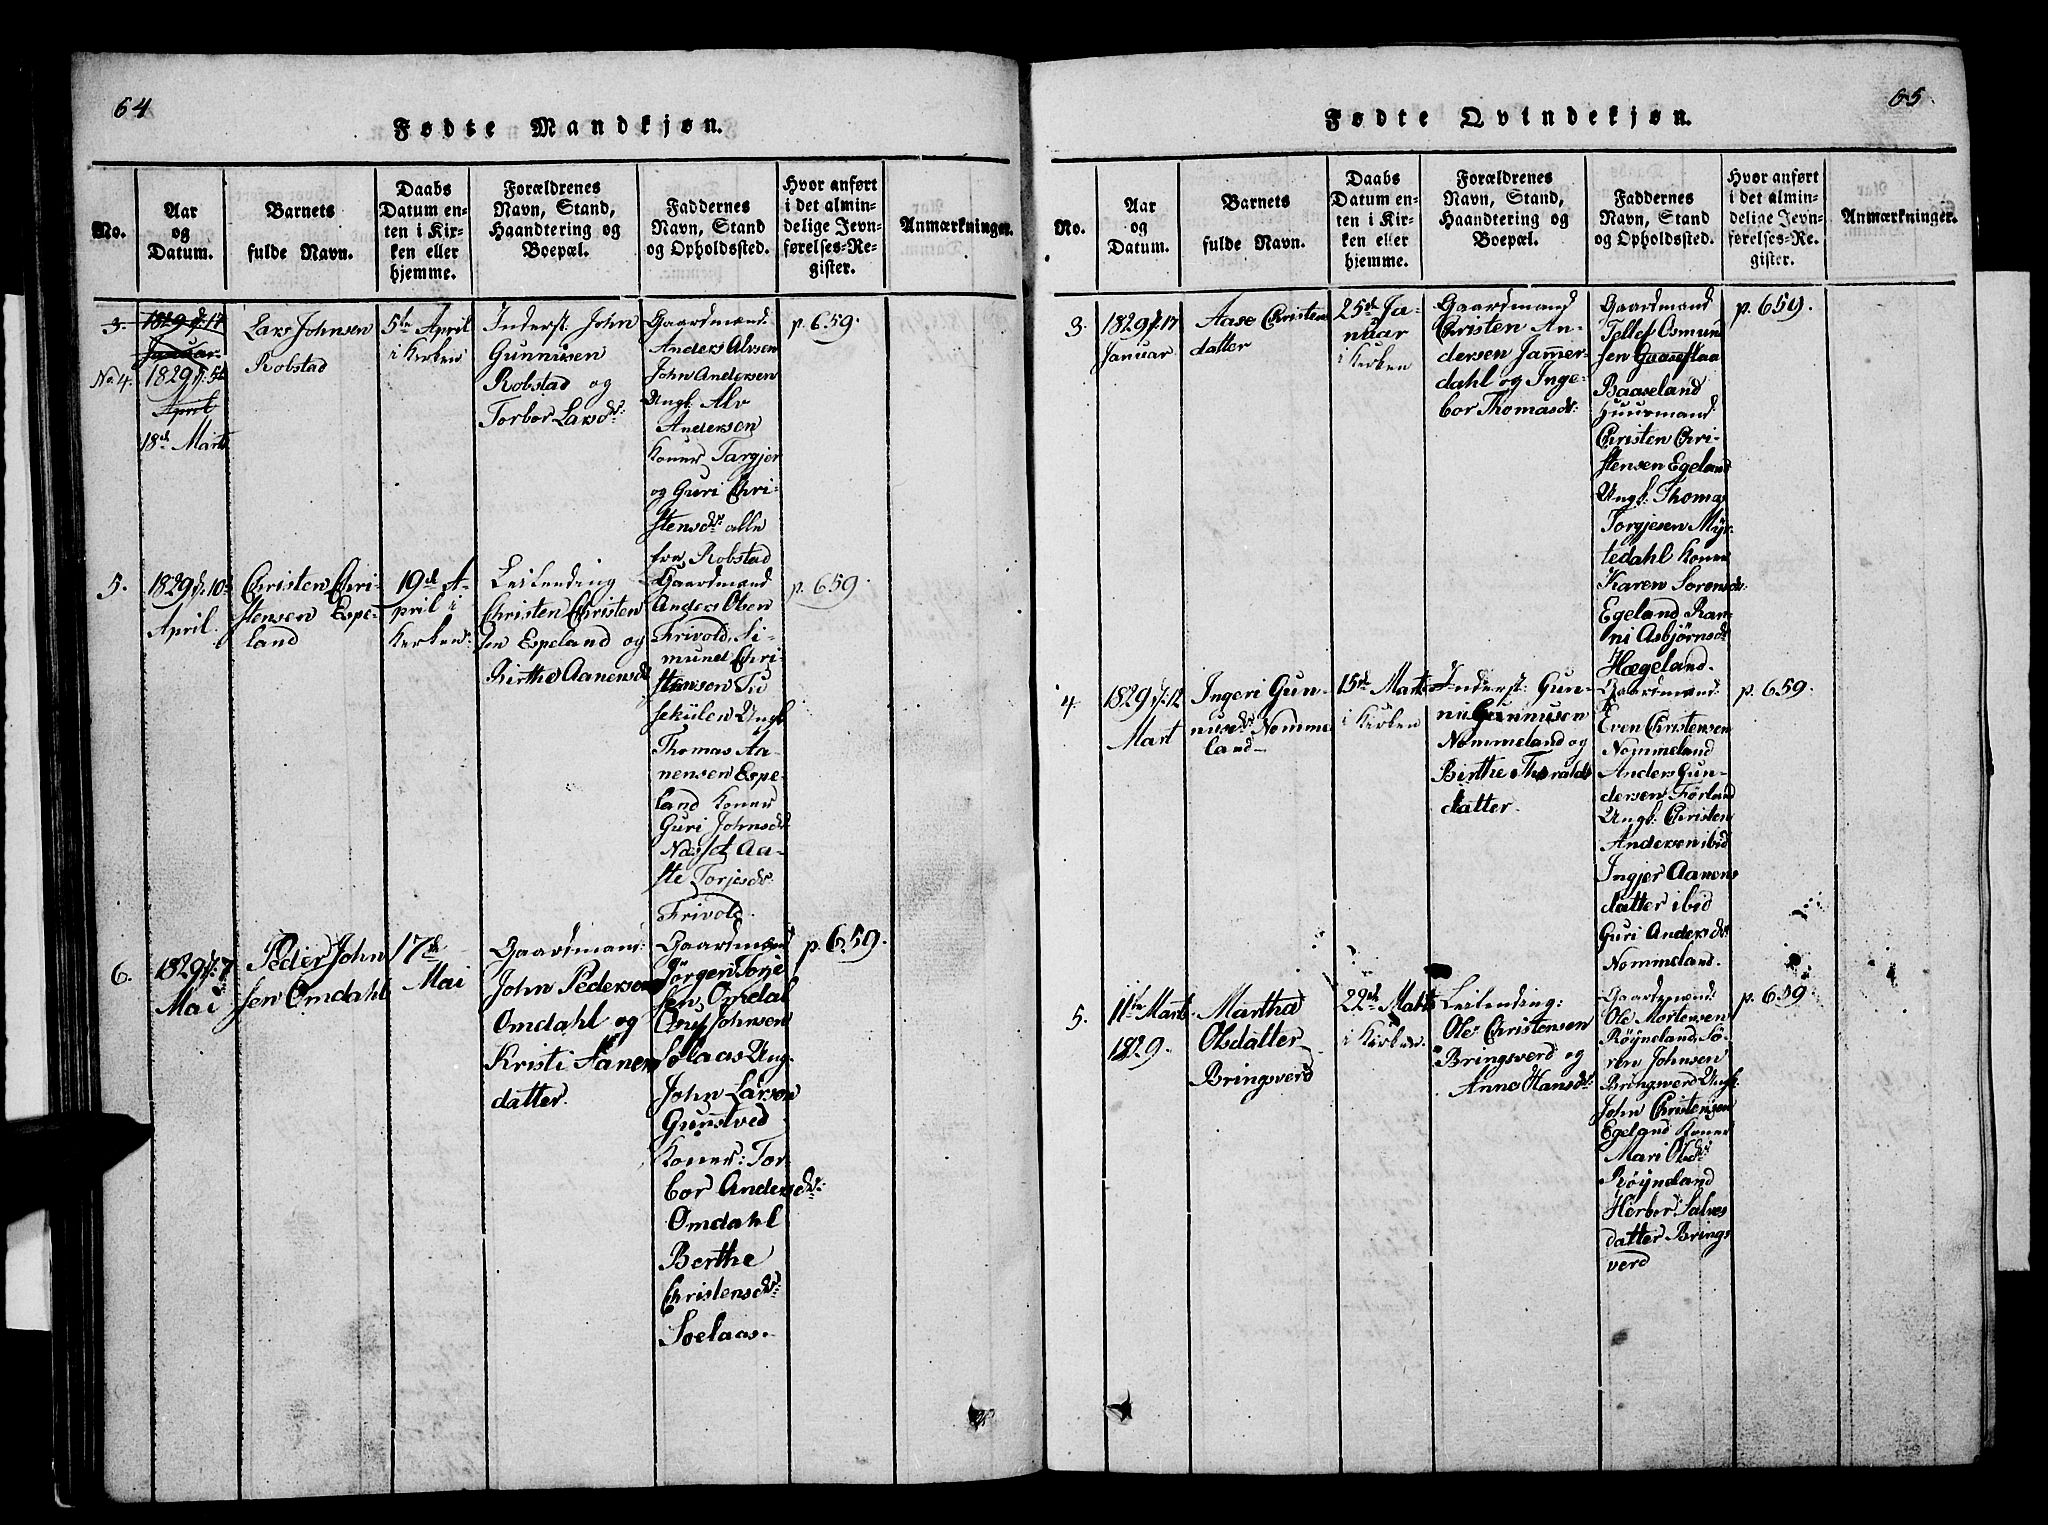 64
Fødte Mandkjøn.
No.
Aar
og
Datum.
Barnets
fulde Navn.
Daabs
Datum en-
ten i Kir-
ken eller
hjemme.
Forældrenes
Navn, Stand,
Haandtering og
Boepæl.
Faddernes
Navn, Stand
og Opholdssted.
Hvor anført
i det almin-
delige Jevn-
førelses-Re-
gister.
Anmærkninger.
3.
1829 d. 17
Januar
No 4.
1829 d. 5te
April
18de Marts
Lars Johnsen
Robstad
5te April
i Kirken
Inderst. John
Gunnusen
Robstad og
Torbor Larsdr:
Gaardmænd:
Anders Alvsen
John Andersen
Ungk. Alv
Andersen
Koner Targjer
og Guri Chri-
stensdr. alle
fra Robstad
p. 659.
5.
1829 d. 10de
April.
Christen Chri-
stensen Espe-
land
19de A-
pril i
Kirken:
Leilending
Christen Christen
sen Espeland og
Birthe Aanensdr
Gaardmænd
Anders Olsen
Frivold, Si-
mund Chri-
stensen Tu
sekülen Ungk.
Thomas Aa-
nensen Espe-
land Koner
Guri Johnsdr
Aa-
ste Torjesdr.
Frivold.
p. 659.
6.
1829 d. 7
Mai
Peder John
sen Omdahl
17de
Mai
Gaardmand:
John Pedersen
Omdahl og
Kristi Aanens
datter.
Gaardmænd
Jörgen Torje
sen Omdal
Johnsen
Solaas Ung.
John Larsen
Gunstved
Koner: Tor-
bor Andersdr:
Omdahl
Berthe
Christensdr:
Soelaas.
p. 659.
65.
Fødte Qvindekjøn.
No.
Aar
og
Datum.
Barnets
fulde Navn.
Daabs
Datum en-
ten i Kir-
ken eller
hjemme.
Forældrenes
Navn, Stand,
Haandtering og
Boepæl.
Faddernes
Navn, Stand
og Opholdssted.
Hvor anført
i det almin-
delige Jevn-
førelses-Re-
gister.
Anmærkninger.
3.
1829 d. 17
Januar
Aase Christens
datter
25de Ja-
nuar
i Kirken
Gaardmand
Christen An-
dersen Jammer-
dahl og Inge-
bor Thomasdr:
Gaardmænd
Tellef Osmund
sen Gaaseflaa
Baaseland
Huusmand
Christen Chri-
stensen Egeland
Ungk. Thomas
Torgjesen Myr-
tedahl Koner
Karen Sorensdr
Egeland Ran-
ni Asbjörnsdr
Hægeland.
p. 659.
4.
1829 d. 12
Mart
Ingeri Gun-
nusdr Nomme
land
15de Marts
i Kirken
Inderst: Gun-
nu Gunnusen
Nommeland og
Birthe Thoralds
datter.
Gaardmænd:
Even Christensen
Nommeland
Anders Gun-
dersen Förland
Ungk. Christen
Andersen ibid
Ingjer Aanens
datter ibid
Guri Andersdr
Nommeland.
p. 659.
5.
11te Marts
1829.
Martha
Olsdatter
Bringsverd
22de Marts
i Kirken.
Leilending:
Ole Christensen
Bringsverd og
Anne Hansdr:
Gaardmænd:
Ole Mortensen
Röyneland, Sö-
ren Johnsen
Bringsverd Ungk.
John Christensen
Egeland Koner
Mari Olsdr
Röyneland
Herbor Salves
datter Brings
verd
p. 659